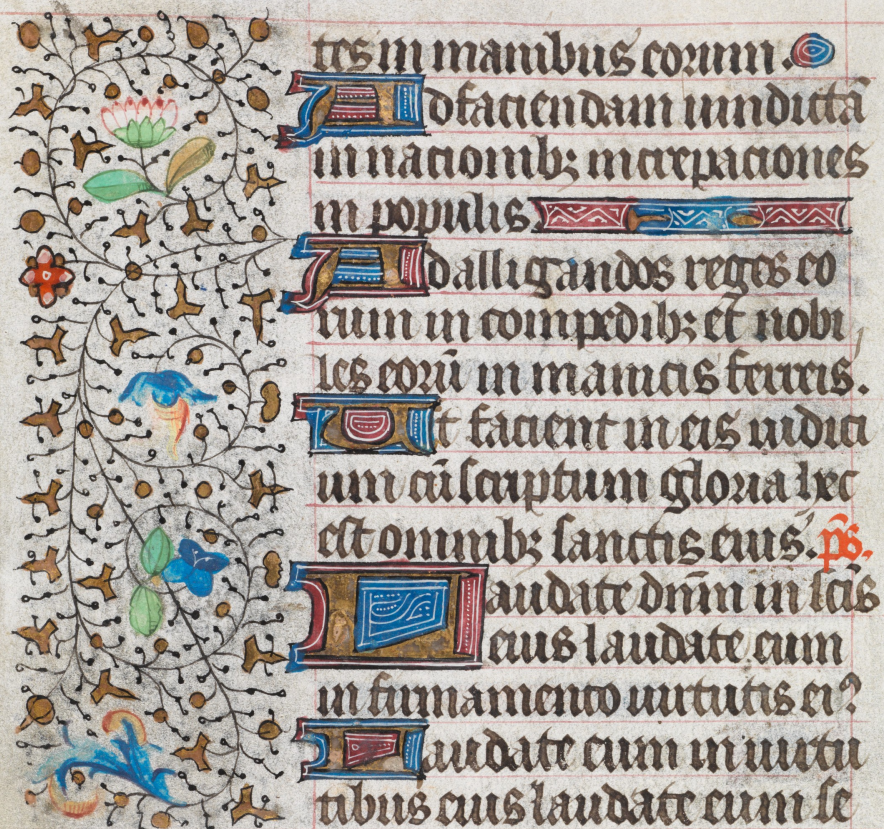 tes in manibus eorum.
Ad faciendam uindictā
in nacionibꝫ increpaciones
in populis
Ad alligandos reges eo
rum in compedibꝫ et nobi
les eorū in manicis ferreis.
Ut faciant in eis iudici
um cūscriptum gloria hec
est omnibꝫ sanctis eius. p̄s.
Laudate dn̄m in sc̄is
eius laudate eum
in firmamento uirtutis eiꝰ
Laudate eum in uirtu
tibus eius laudate eum se